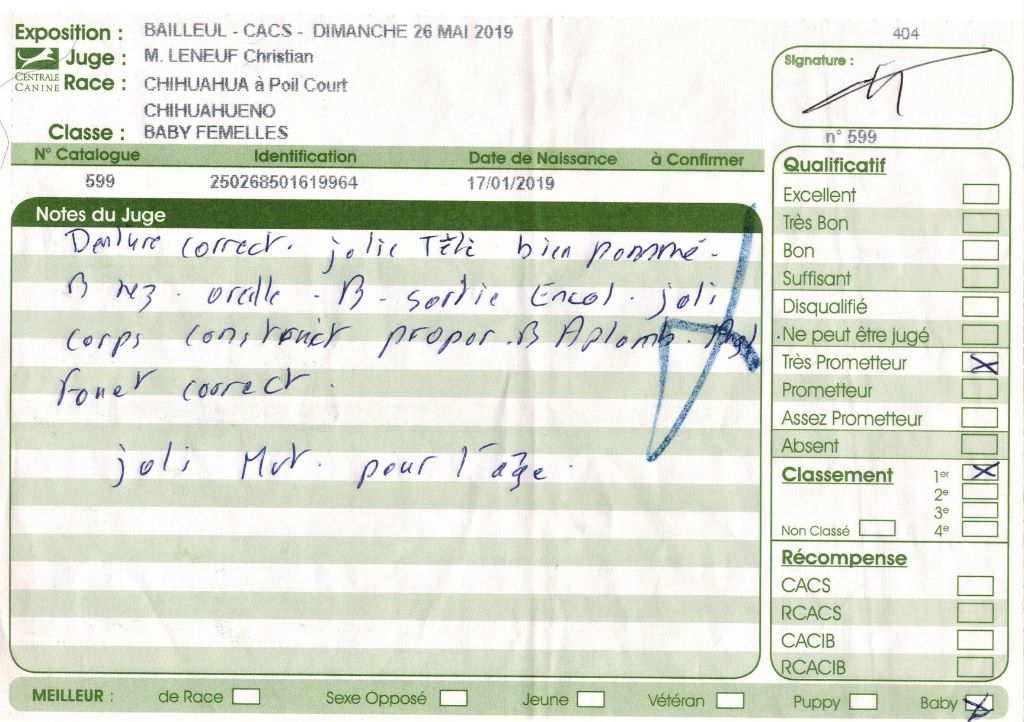 Exposition : BAILLEUL - CACS - DIMANCHE 26 MAI 2019
404
CENTRALE CANINE
Juge : M. LENEUF Christian
Race : CHIHUAHUA à Poil Court
CHIHUAHUENO
Classe : BABY FEMELLES
Signature :
n° 599
N° Catalogue Identification Date de Naissance à Confirmer
599 250268501619964 17/01/2019
Notes du Juge
Denture correct. jolie Tête bien pommé.
B nez. oreille - B - sortie Encol. joli
corps construit propor. B Aplomb. Angl
fouet correct.
joli Mvt. pour l'age.
Qualificatif
Excellent
Très Bon
Bon
Suffisant
Disqualifié
Ne peut être jugé
Très Prometteur X
Prometteur
Assez Prometteur
Absent
Classement 1er X
2e
3e
Non Classé 4e
Récompense
CACS
RCACS
CACIB
RCACIB
MEILLEUR : de Race Sexe Opposé Jeune Vétéran Puppy Baby X